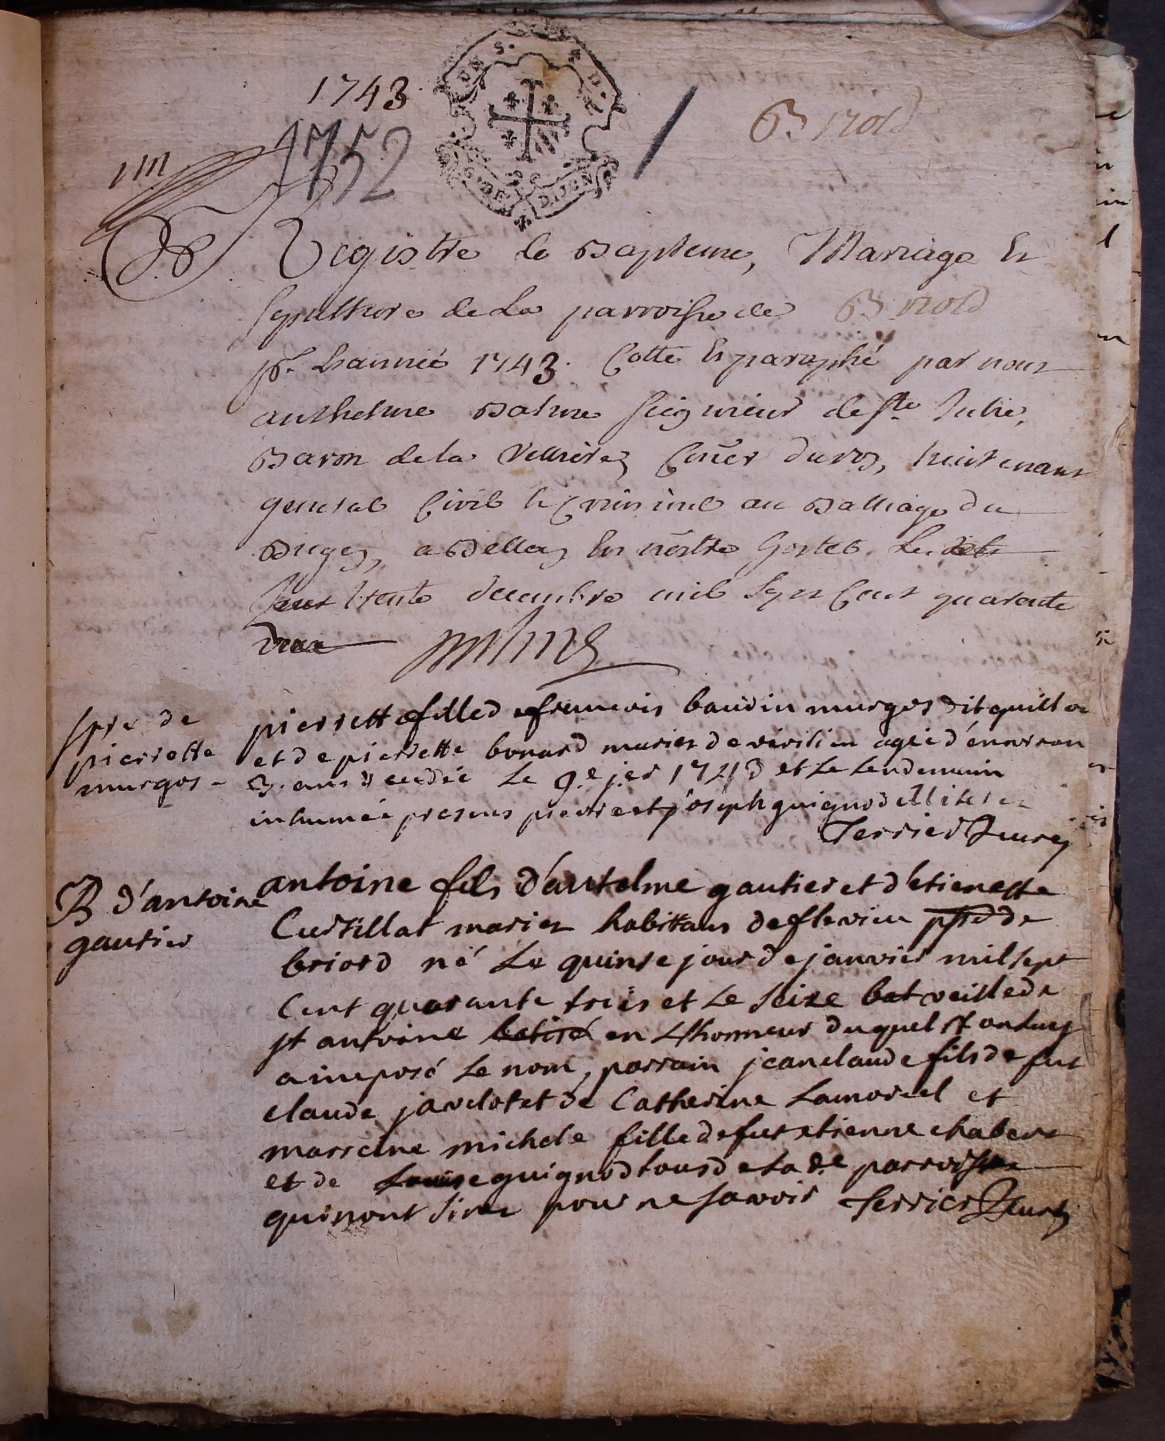 1743
1752
Briord
Registre de Bapteme, Mariage Et
sepulthure de La parroisse de Briord
pr. Lannée 1743. Cotté Et paraphé par nous
anthelme Balme seigneur de Ste Julie,
Baron de la Vellière, Coner du roy, Lieutenant
general Civil et Criminel au Balliage du
Bugey, a Belley En nostre hostel. Le
trente decembre mil Sept Cent quarante
deux
spre de
pierrette
murgos
pierrette fille de francois baudin murgos dit quillon
et de pierrette bonard maries de verilieu agée d'environ
3. ans decedée Le 9.e jer 1743 et Le Lendemain
inhumée presens pierre et joseph guignod illiteres
Terrier Cure
B d'antoine
gautier
antoine fils d'antelme gautier et d'etienette
Curtillat maries habittans de flevieu psse de
briord né Le quinse jour de janvier mil sept
Cent quarante trois et Le seize bat veille de
st antoine batisé en Lhonneur du quel st on luy
a imposé Le nom, parrain jean claude fils de fut
claude javelot et de Catherine Lamorcel et
marreine michele fille de fut etienne chabert
et de Louise guignod tous de la de parroisse
qui n'ont siné pour ne savoir Terrier Curé